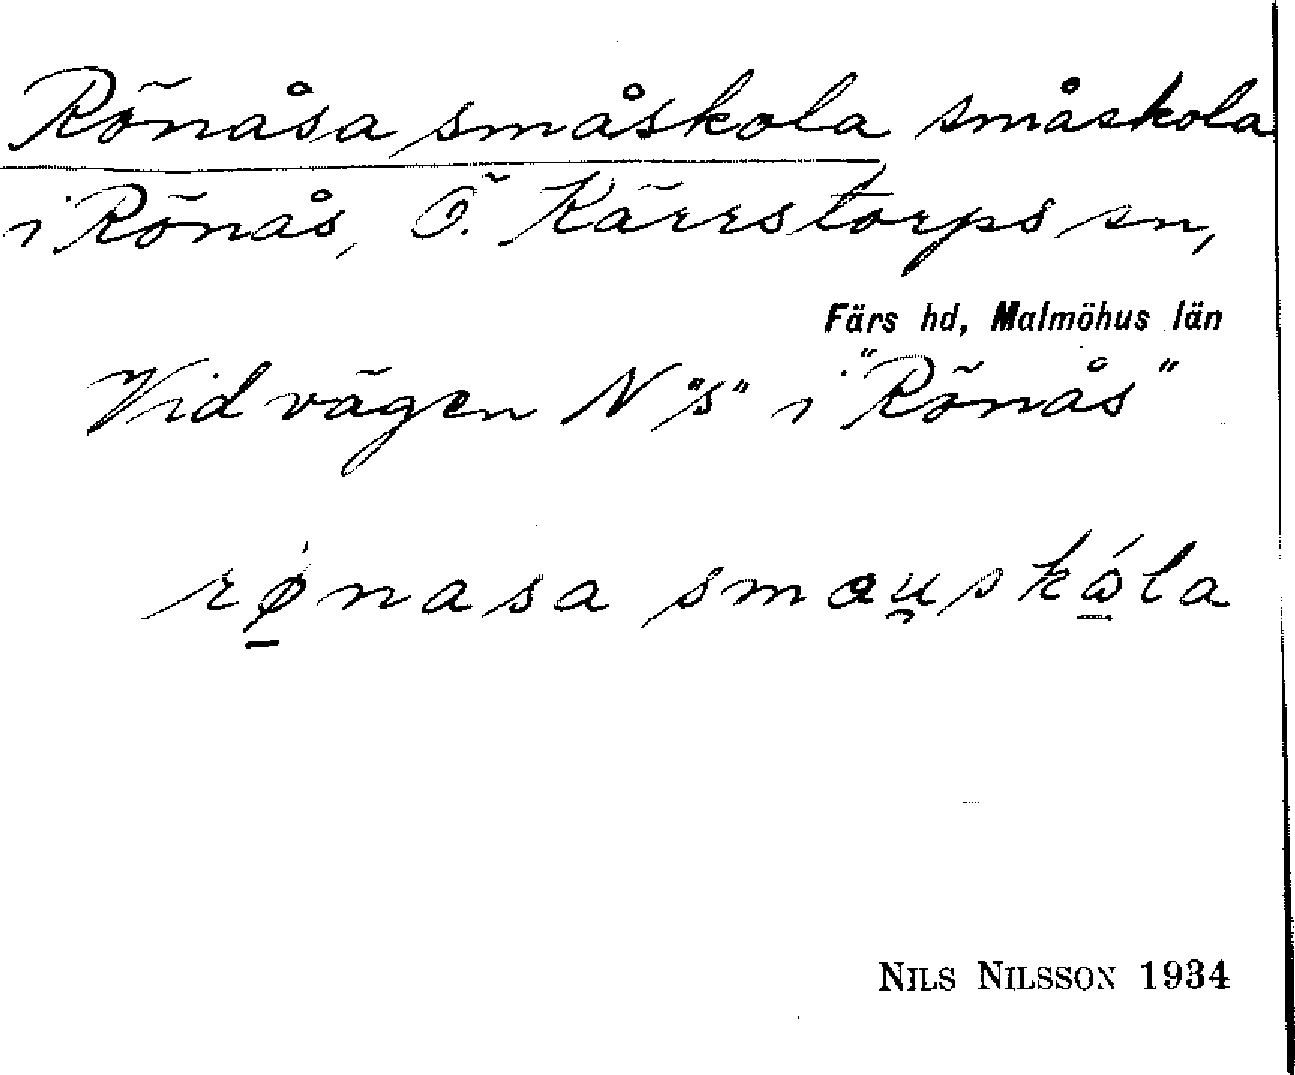 Rönåsa småskola småskola
i Rönås, Ö. Kärrstorps sn,
Färs hd, Malmöhus län
Vid vägen N "s" i "Rönås"
rǿ̱nasa smau̯skǻ̱la
NILS NILSSON 1934